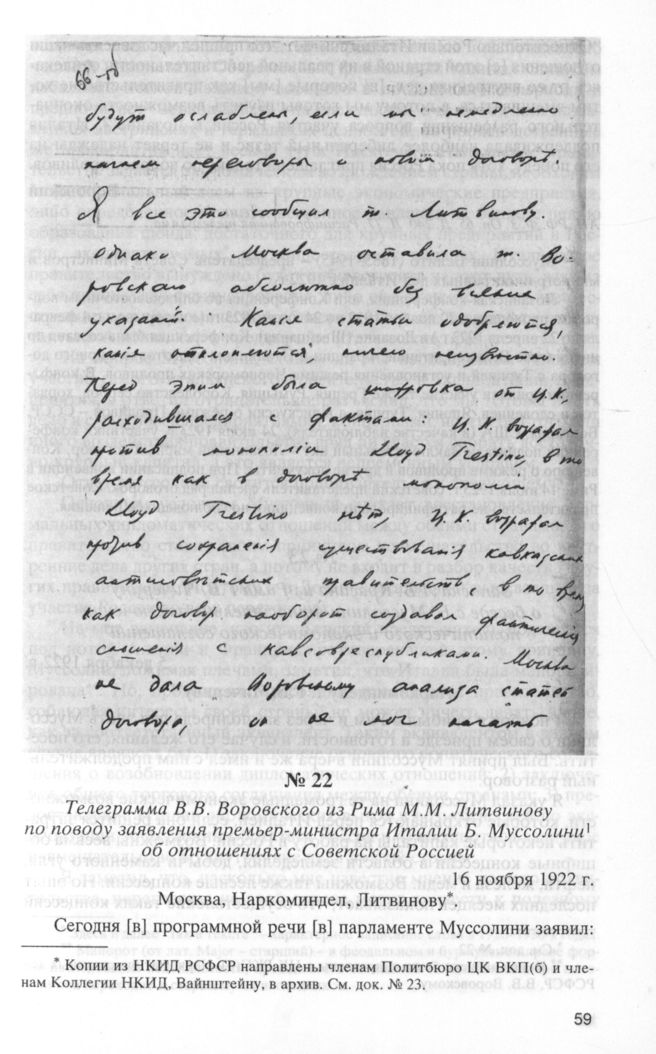 66-об
будут ослаблены, если мы немедленно
начнем переговоры о новом договорѣ.
Я все это сообщил т. Литвинову.
однако Москва оставила т. Во-
ровскаго абсолютно без всяких
указаній. Какія статьи одобряются,
какія отклоняются, ничего неизвѣстно.
Перед этим была шифровка от Ц.К.,
расходившаяся с фактами: Ц.К. возражал
против монополіи Lloyd Triestino, в то
время как в договорѣ монополіи
Lloyd Triestino нѣт, Ц.К. возражал
против сохраненія существованія кавказских
антисовѣтских правительств, в то время
как договор наоборот создавал фактическія
сношенія с кавсоврестпубликами. Москва
не дала Воровскому анализа статей
договора, он не мог начать
№ 22
Телеграмма В.В. Воровского из Рима М.М. Литвинову
по поводу заявления премьер-министра Италии Б. Муссолини¹
об отношениях с Советской Россией
16 ноября 1922 г.
Москва, Наркоминдел, Литвинову*.
Сегодня [в] программной речи [в] парламенте Муссолини заявил:
* Копии из НКИД РСФСР направлены членам Политбюро ЦК ВКП(б) и чле-
нам Коллегии НКИД, Вайнштейну, в архив. См. док. № 23.
59